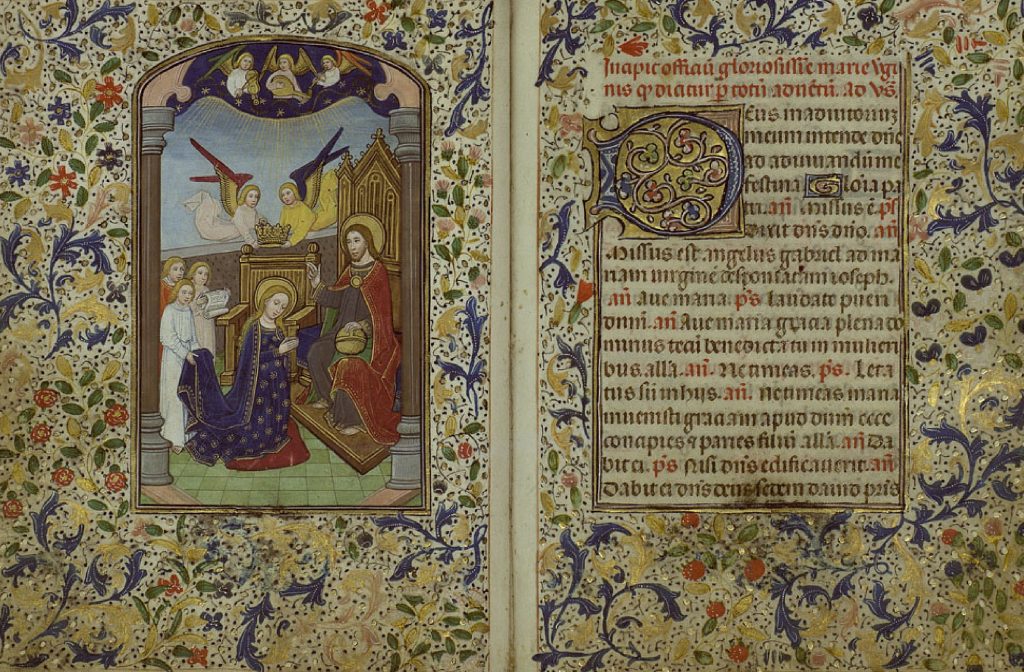 Incipit officiū gloriosissīe marie v̄gi
nis q̄ dicitur p̄ totū aduētū. Ad v̄s
Deus in adiutoriū
meum intende dn̄e
ad adiuuandū me
festina Gloria pa
tri. an̄. Missus ē. ps̄
Dixit dn̄s dn̄o. an̄
Missus est angelus gabriel ad ma
riam uirginē desponsatam ioseph.
an̄. Aue maria. ps̄. Laudate pueri
dn̄m. an̄. Aue maria gracia plena do
minus tecū benedicta tu in mulieri
bus. all̄a. an̄. Ne timeas. ps̄. Leta
tus sū in hiis. an̄. Ne timeas maria
inuenisti graciam apud dn̄m ecce
concipies ⁊ paries filiū all̄a. an̄ Da
bit ei. ps̄. Nisi dn̄s edificauerit. an̄
Dabit ei dn̄s deus sedem dauid pr̄is